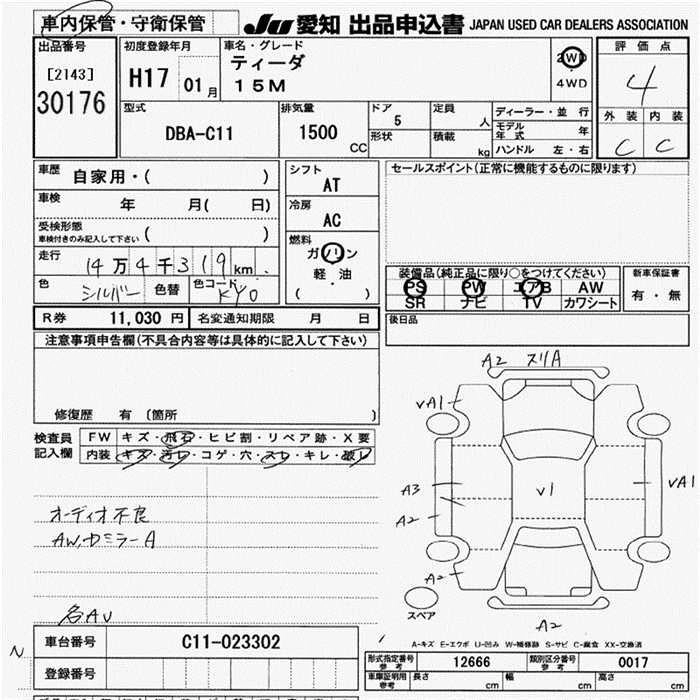 車内保管・守衛保管
JU 愛知 出品申込書 JAPAN USED CAR DEALERS ASSOCIATION
出品番号
[2143]
30176
初度登録年月
H17 01月
車名・グレード
ティーダ
15M
2WD
4WD
評価点
4
外装 内装
C C
型式
DBA-C11
排気量
1500 CC
ドア
5
形状
定員
人
積載
kg
ディーラー・並行
モデル年式 年
ハンドル 左・右
車歴
自家用・( )
車検
年 月( 日)
受検形態
車検付きのみ記入して下さい ( )
走行
14万4千319km
色
シルバー
色替
色コード
KY0
シフト
AT
冷房
AC
燃料
ガソリン
軽・油
( )
セールスポイント(正常に機能するものに限ります)
装備品(純正品に限り○をつけてください)
PS PW エアB AW
SR ナビ TV カワシート
新車保証書
有・無
後日品
R券 11,030 円
名変通知期限 月 日
注意事項申告欄(不具合内容等は具体的に記入して下さい)
修復歴 有 〔箇所 〕
検査員記入欄
FW キズ・飛石・ヒビ割・リペア跡・X要
内装 キズ・汚レ・コゲ・穴・スレ・キレ・破レ
オーディオ不良
AW,カミラーA
各AU
A2 スリA
VA1
A3
A2
A2
V1
VA1
A2
スペア
A-キズ E-エクボ U-凹み W-補修跡 S-サビ C-腐食 XX-交換済
N
車台番号 C11-023302
登録番号
形式指定番号 参考 12666
類別区分番号 参考 0017
車庫証明用 参考 長さ cm 幅 cm 高さ cm